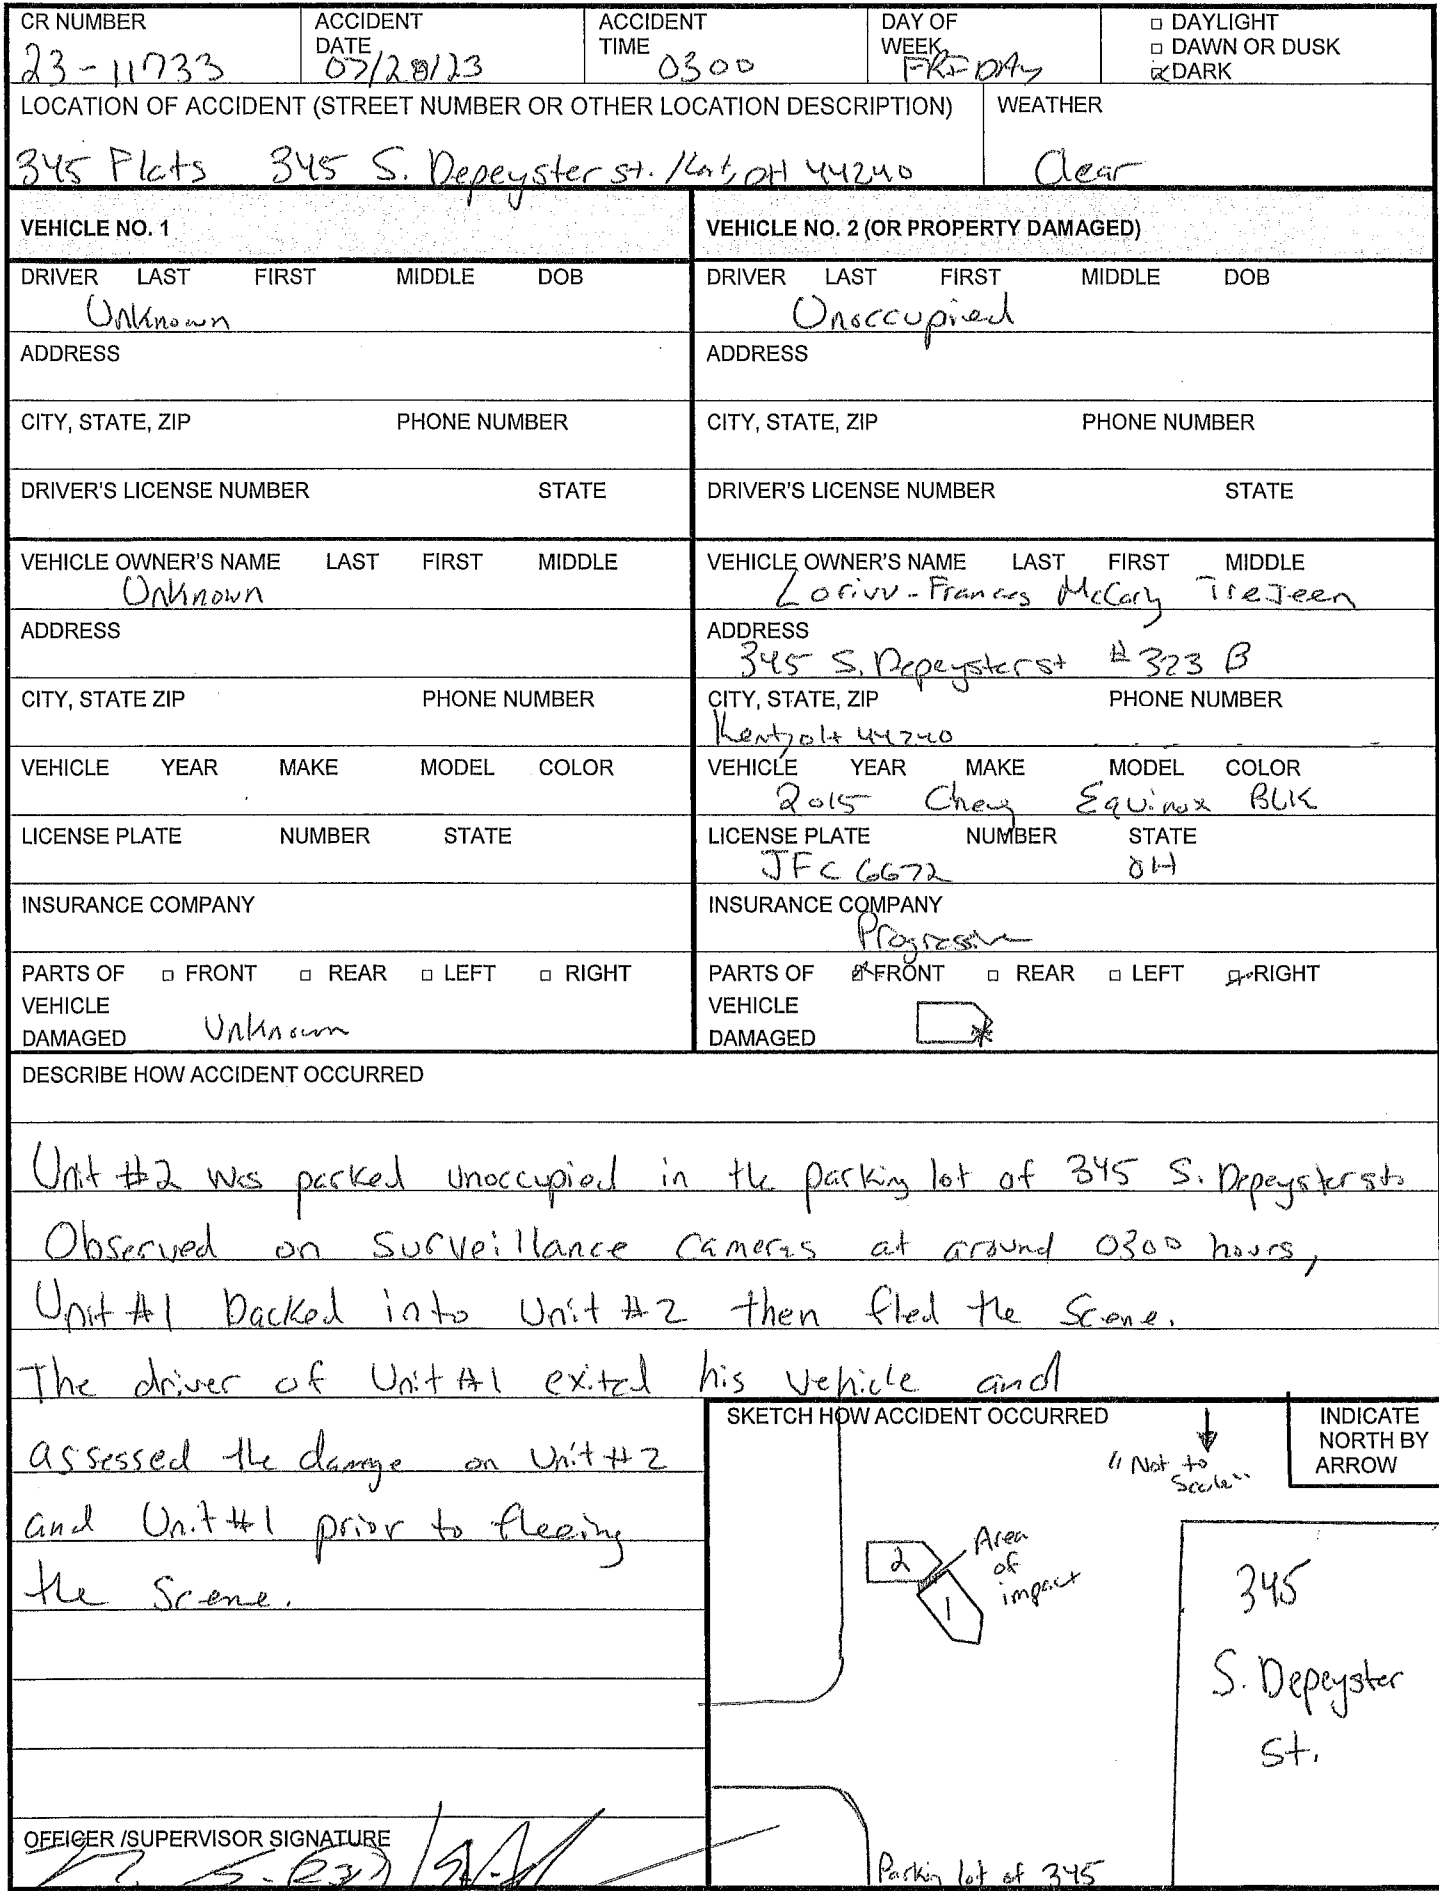 CR NUMBER
23-11733
ACCIDENT DATE
07/28/23
ACCIDENT TIME
0300
DAY OF WEEK
FRIDAY
□ DAYLIGHT
□ DAWN OR DUSK
☒ DARK
LOCATION OF ACCIDENT (STREET NUMBER OR OTHER LOCATION DESCRIPTION)
345 Flats 345 S. Depeyster st. / Kent, OH 44240
WEATHER
Clear
VEHICLE NO. 1
DRIVER LAST FIRST MIDDLE DOB
Unknown
ADDRESS
CITY, STATE, ZIP PHONE NUMBER
DRIVER'S LICENSE NUMBER STATE
VEHICLE OWNER'S NAME LAST FIRST MIDDLE
Unknown
ADDRESS
CITY, STATE ZIP PHONE NUMBER
VEHICLE YEAR MAKE MODEL COLOR
LICENSE PLATE NUMBER STATE
INSURANCE COMPANY
PARTS OF □ FRONT □ REAR □ LEFT □ RIGHT
VEHICLE
DAMAGED Unknown
VEHICLE NO. 2 (OR PROPERTY DAMAGED)
DRIVER LAST FIRST MIDDLE DOB
Unoccupied
ADDRESS
CITY, STATE, ZIP PHONE NUMBER
DRIVER'S LICENSE NUMBER STATE
VEHICLE OWNER'S NAME LAST FIRST MIDDLE
-Frances McCary
ADDRESS
345 S. Depeyster st #323 B
CITY, STATE, ZIP PHONE NUMBER
Kent, OH 44240
VEHICLE YEAR MAKE MODEL COLOR
2015 Chevy Equinox BLK
LICENSE PLATE NUMBER STATE
JFC 6672 OH
INSURANCE COMPANY
Progressive
PARTS OF ☒ FRONT □ REAR □ LEFT ☒ RIGHT
VEHICLE
DAMAGED
DESCRIBE HOW ACCIDENT OCCURRED
Unit #2 was parked unoccupied in the parking lot of 345 S. Depeyster st.
Observed on surveillance cameras at around 0300 hours,
Unit #1 backed into Unit #2 then fled the scene.
The driver of Unit #1 exited his vehicle and
assessed the damage on Unit #2
and Unit #1 prior to fleeing
the scene.
OFFICER /SUPERVISOR SIGNATURE
SKETCH HOW ACCIDENT OCCURRED
"Not to
Scale"
INDICATE
NORTH BY
ARROW
2
1
Area
of
impact
345
S. Depeyster
St.
Parking lot of 345